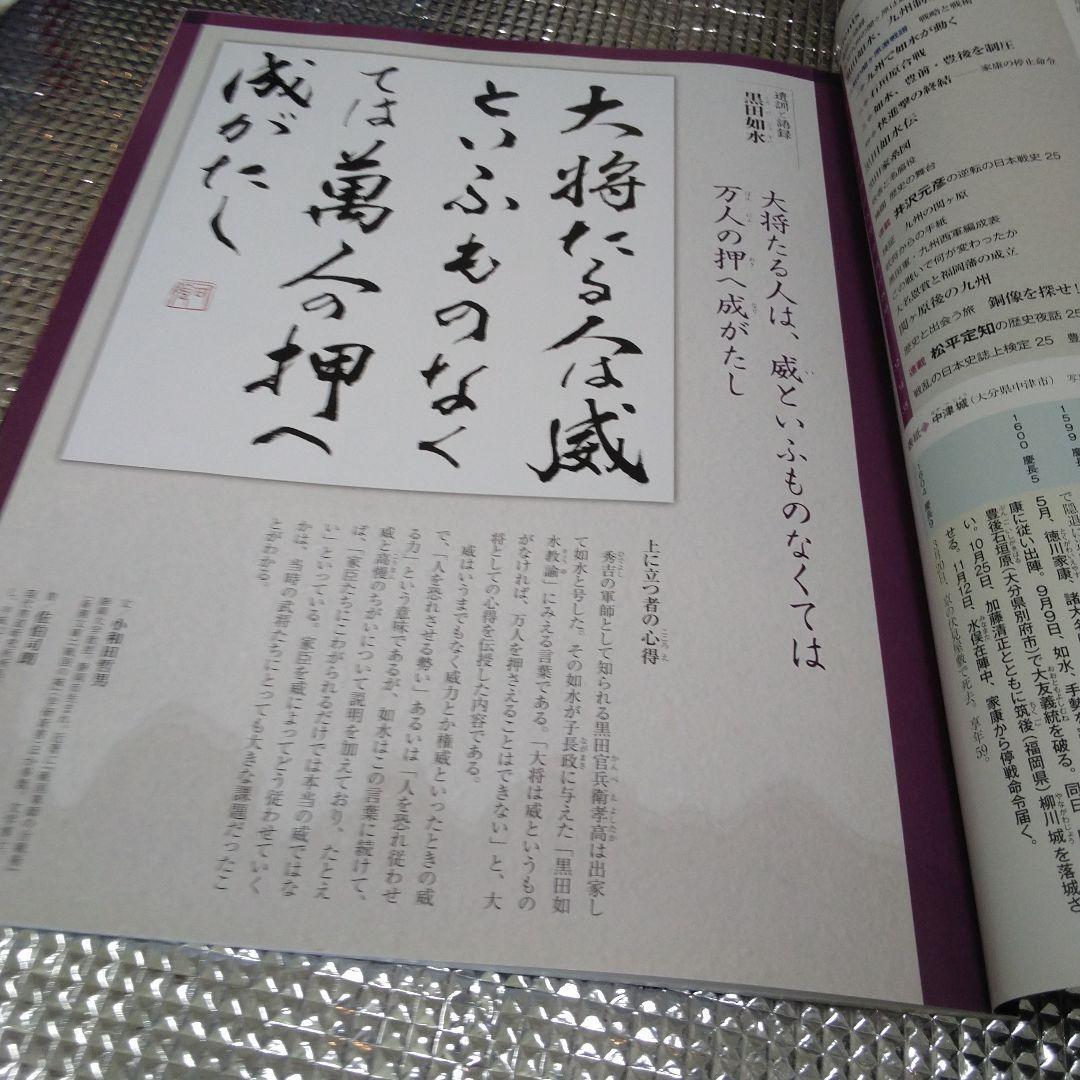 遺訓と語録
黒田如水
大将たる人は、威といふものなくては
万人の押へ成がたし
大将たる人は威
といふものなく
ては萬人の押へ
成がたし
上に立つ者の心得
秀吉の軍師として知られる黒田官兵衛孝高は出家し
て如水と号した。その如水が子長政に与えた「黒田如
水教諭」にみえる言葉である。「大将は威というもの
がなければ、万人を押さえることはできない」と、大
将としての心得を伝授した内容である。
威はいうまでもなく威力とか権威といったときの威
で、「人を恐れさせる勢い」あるいは「人を恐れ従わせ
る力」という意味であるが、如水はこの言葉に続けて、
威と高慢のちがいについて説明を加えており、たとえ
ば、「家臣たちにこわがられるだけでは本当の威ではな
い」といっている。家臣を威によってどう従わせていく
かは、当時の武将たちにとっても大きな課題だったこ
とがわかる。
文 小和田哲男
書 佐伯司朗
九州で如水が動く
石垣原合戦
如水、豊前・豊後を制圧
快進撃の終結
家康の停止命令
黒田如水伝
黒田家系図
歴史の舞台
連載 井沢元彦の逆転の日本戦史 25
九州の関ヶ原
武将からの手紙
黒田軍・九州西軍編成表
この戦いで何が変わったか
大名恩賞と福岡藩の成立
関ヶ原後の九州
歴史と出会う旅 銅像を探せ!
連載 松平定知の歴史夜話 25
戦乱の日本史誌上検定 25
表紙◆中津城(大分県中津市)
1599 慶長
1600 慶長5
1604 慶長9
で隠退
5月、徳川家康、諸大
康に従い出陣。9月9日、如水、手勢
豊後石垣原(大分県別府市)で大友義統を破る。同日
い。10月25日、加藤清正とともに筑後(福岡県)柳川城を落城さ
せる。11月12日、水俣在陣中、家康から停戦命令届く。
3月20日、京の伏見屋敷で死去。享年59。